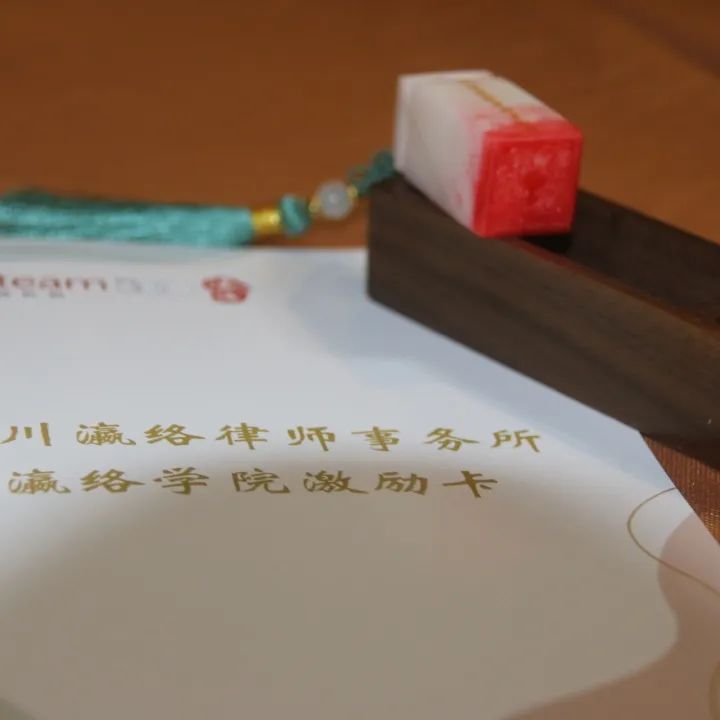 team
川瀛络律师事务所
瀛络学院激励卡